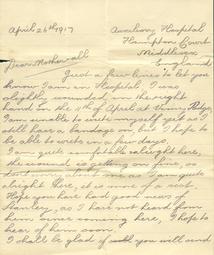 April 26th 1917
Auxiliary Hospital
Hampton Court
Middlesex
England
Dear Mother & all
Just a few lines to let you
know I am in Hospital, I was
slightly wounded in the right
hand on the 9th of April at Vimy Ridge
I am unable to write myself yet as I
still have a bandage on, but I hope to
be able to write in a few days,
I am quite comfortable alright here,
the wound is getting on fine, so
don't worry about me as I am quite
alright here, it is more of a rest.
Hope you have had good news of
Stanley, as I have not heard from
him since coming here, I hope to
hear of him soon.
I shall be glad if you will send